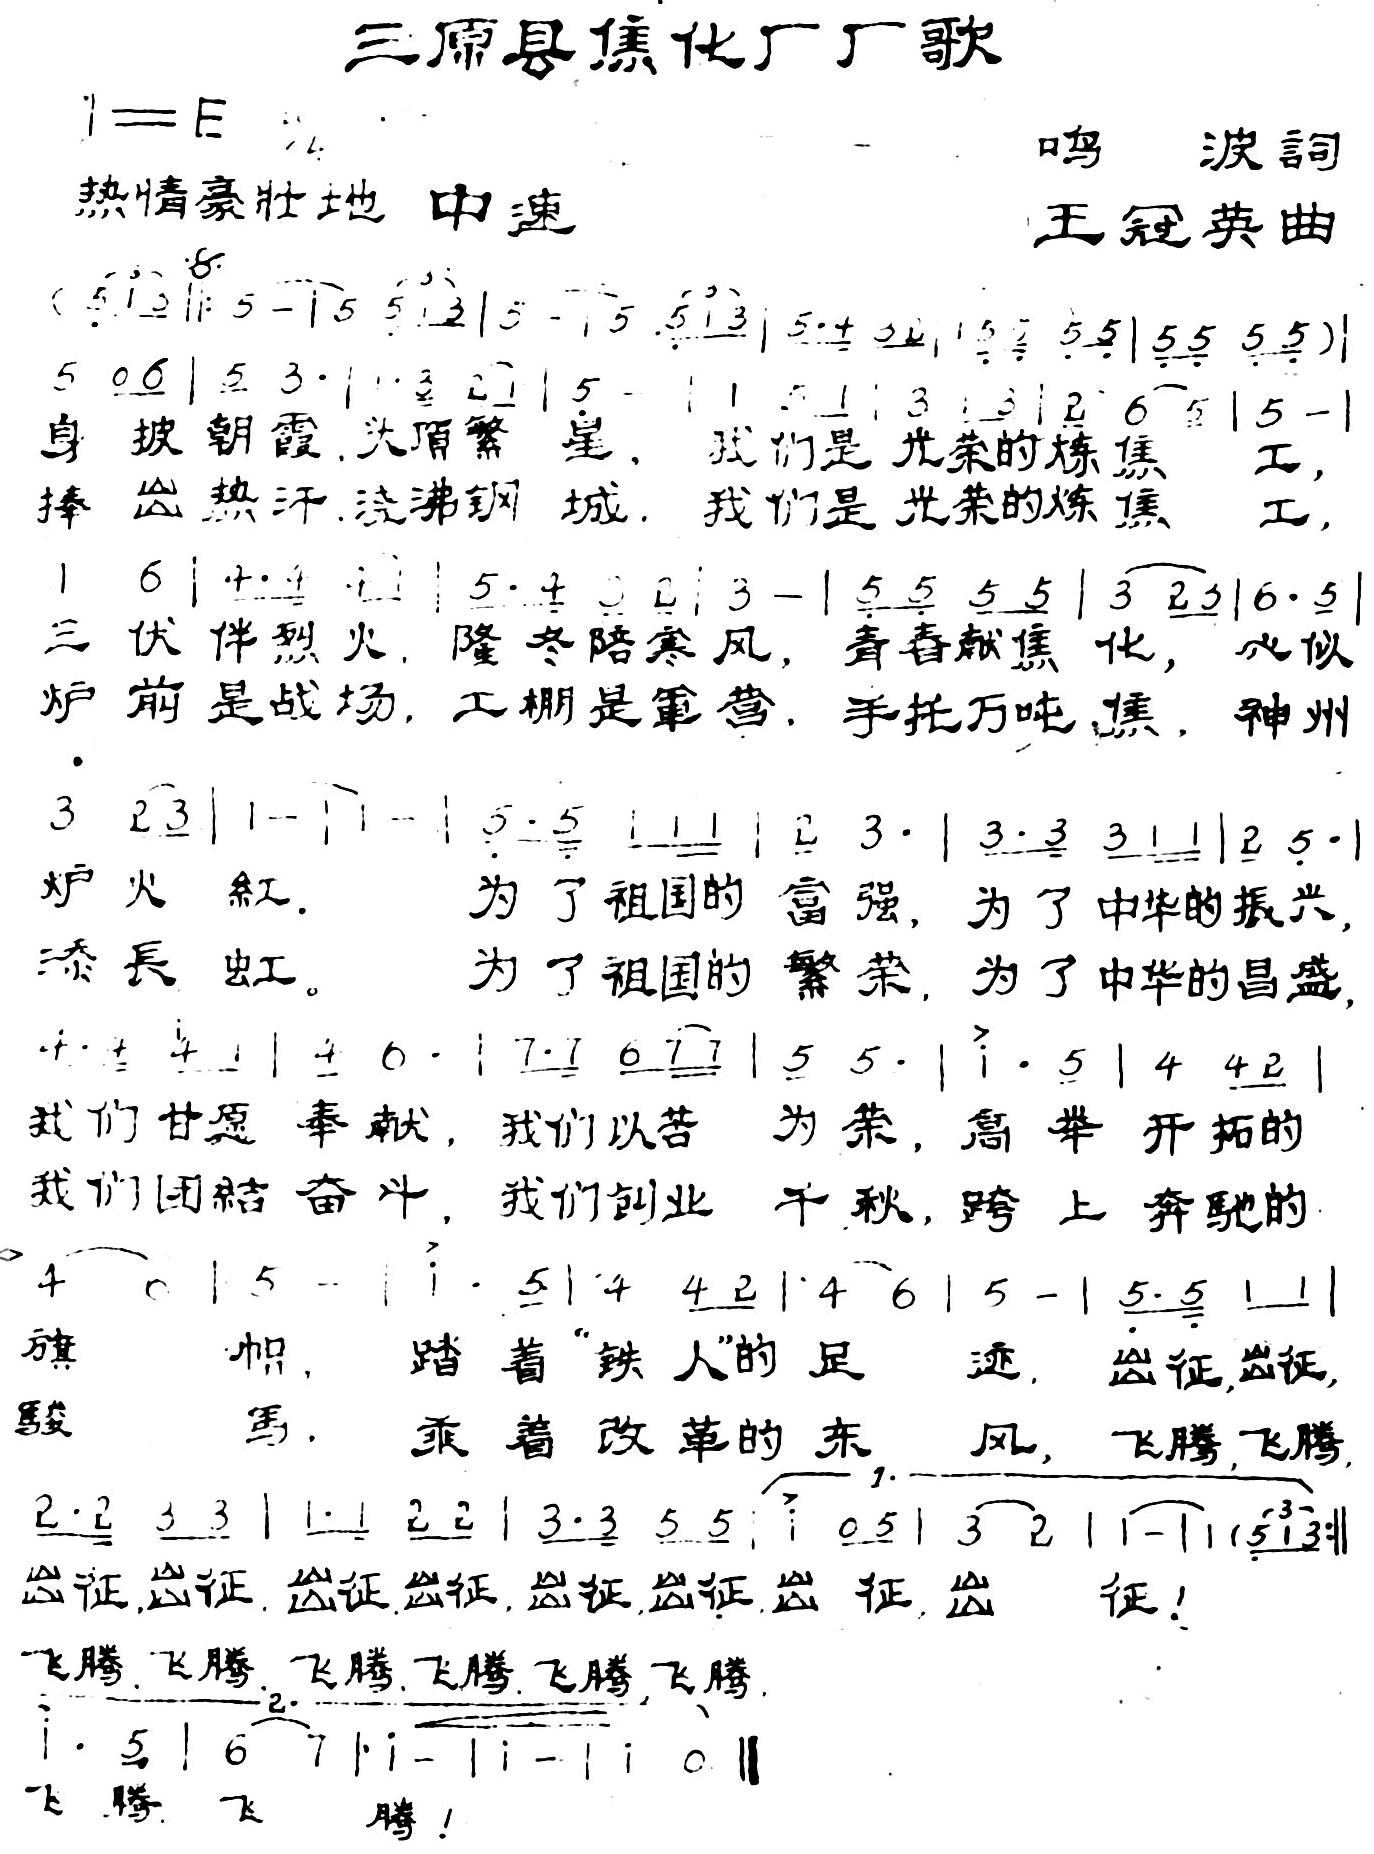 三原县焦化厂厂歌
1=E 2/4
鸣 波詞
热情豪壮地 中速
王冠英曲
(5 1 3 ‖: 5 - | 5 5 1 3 | 5 - | 5 5 1 3 | 5·4 3 2 | 1 5 5 5 5 | 5 5 5 5 ) |
5 0 6 | 5 3· | 1·3 2 1 | 5 - | 1 5 1 | 3 1 3 | 2 6 5 | 5 - |
身披朝霞,头頂繁星, 我们是光荣的炼焦工,
捧出热汗,浇沸钢城, 我们是光荣的炼焦工,
1 6 | 4·4 4 1 | 5·4 3 2 | 3 - | 5 5 5 5 | 3 2 3 | 6·5 |
三伏伴烈火,隆冬陪寒风,青春献焦化,心似
炉前是战场,工棚是軍营,手托万吨焦,神州
3 2 3 | 1 - | 1 - | 5·5 1 1 1 | 2 3· | 3·3 3 1 1 | 2 5· |
炉火紅. 为了祖国的富强,为了中华的振兴,
添長虹。 为了祖国的繁荣,为了中华的昌盛,
4·4 4 1 | 4 6· | 7·7 6 7 7 | 5 5· | i· 5 | 4 4 2 |
我们甘愿奉献,我们以苦为荣,高举开拓的
我们团結奋斗,我们创业千秋,跨上奔馳的
4 0 | 5 - | i· 5 | 4 4 2 | 4 6 | 5 - | 5·5 1 1 |
旗帜,踏着“铁人”的足迹.出征,出征,
駿馬.乘着改革的东风,飞腾,飞腾,
1.
2·2 3 3 | 1·1 2 2 | 3·3 5 5 | i 0 5 | 3 2 | 1 - | 1 (5 1 3 :‖
出征,出征,出征,出征,出征,出征,出征,出征!
飞腾,飞腾,飞腾,飞腾,飞腾,飞腾,
2.
i· 5 | 6 7 | i - | i - | i 0 ‖
飞腾,飞腾!